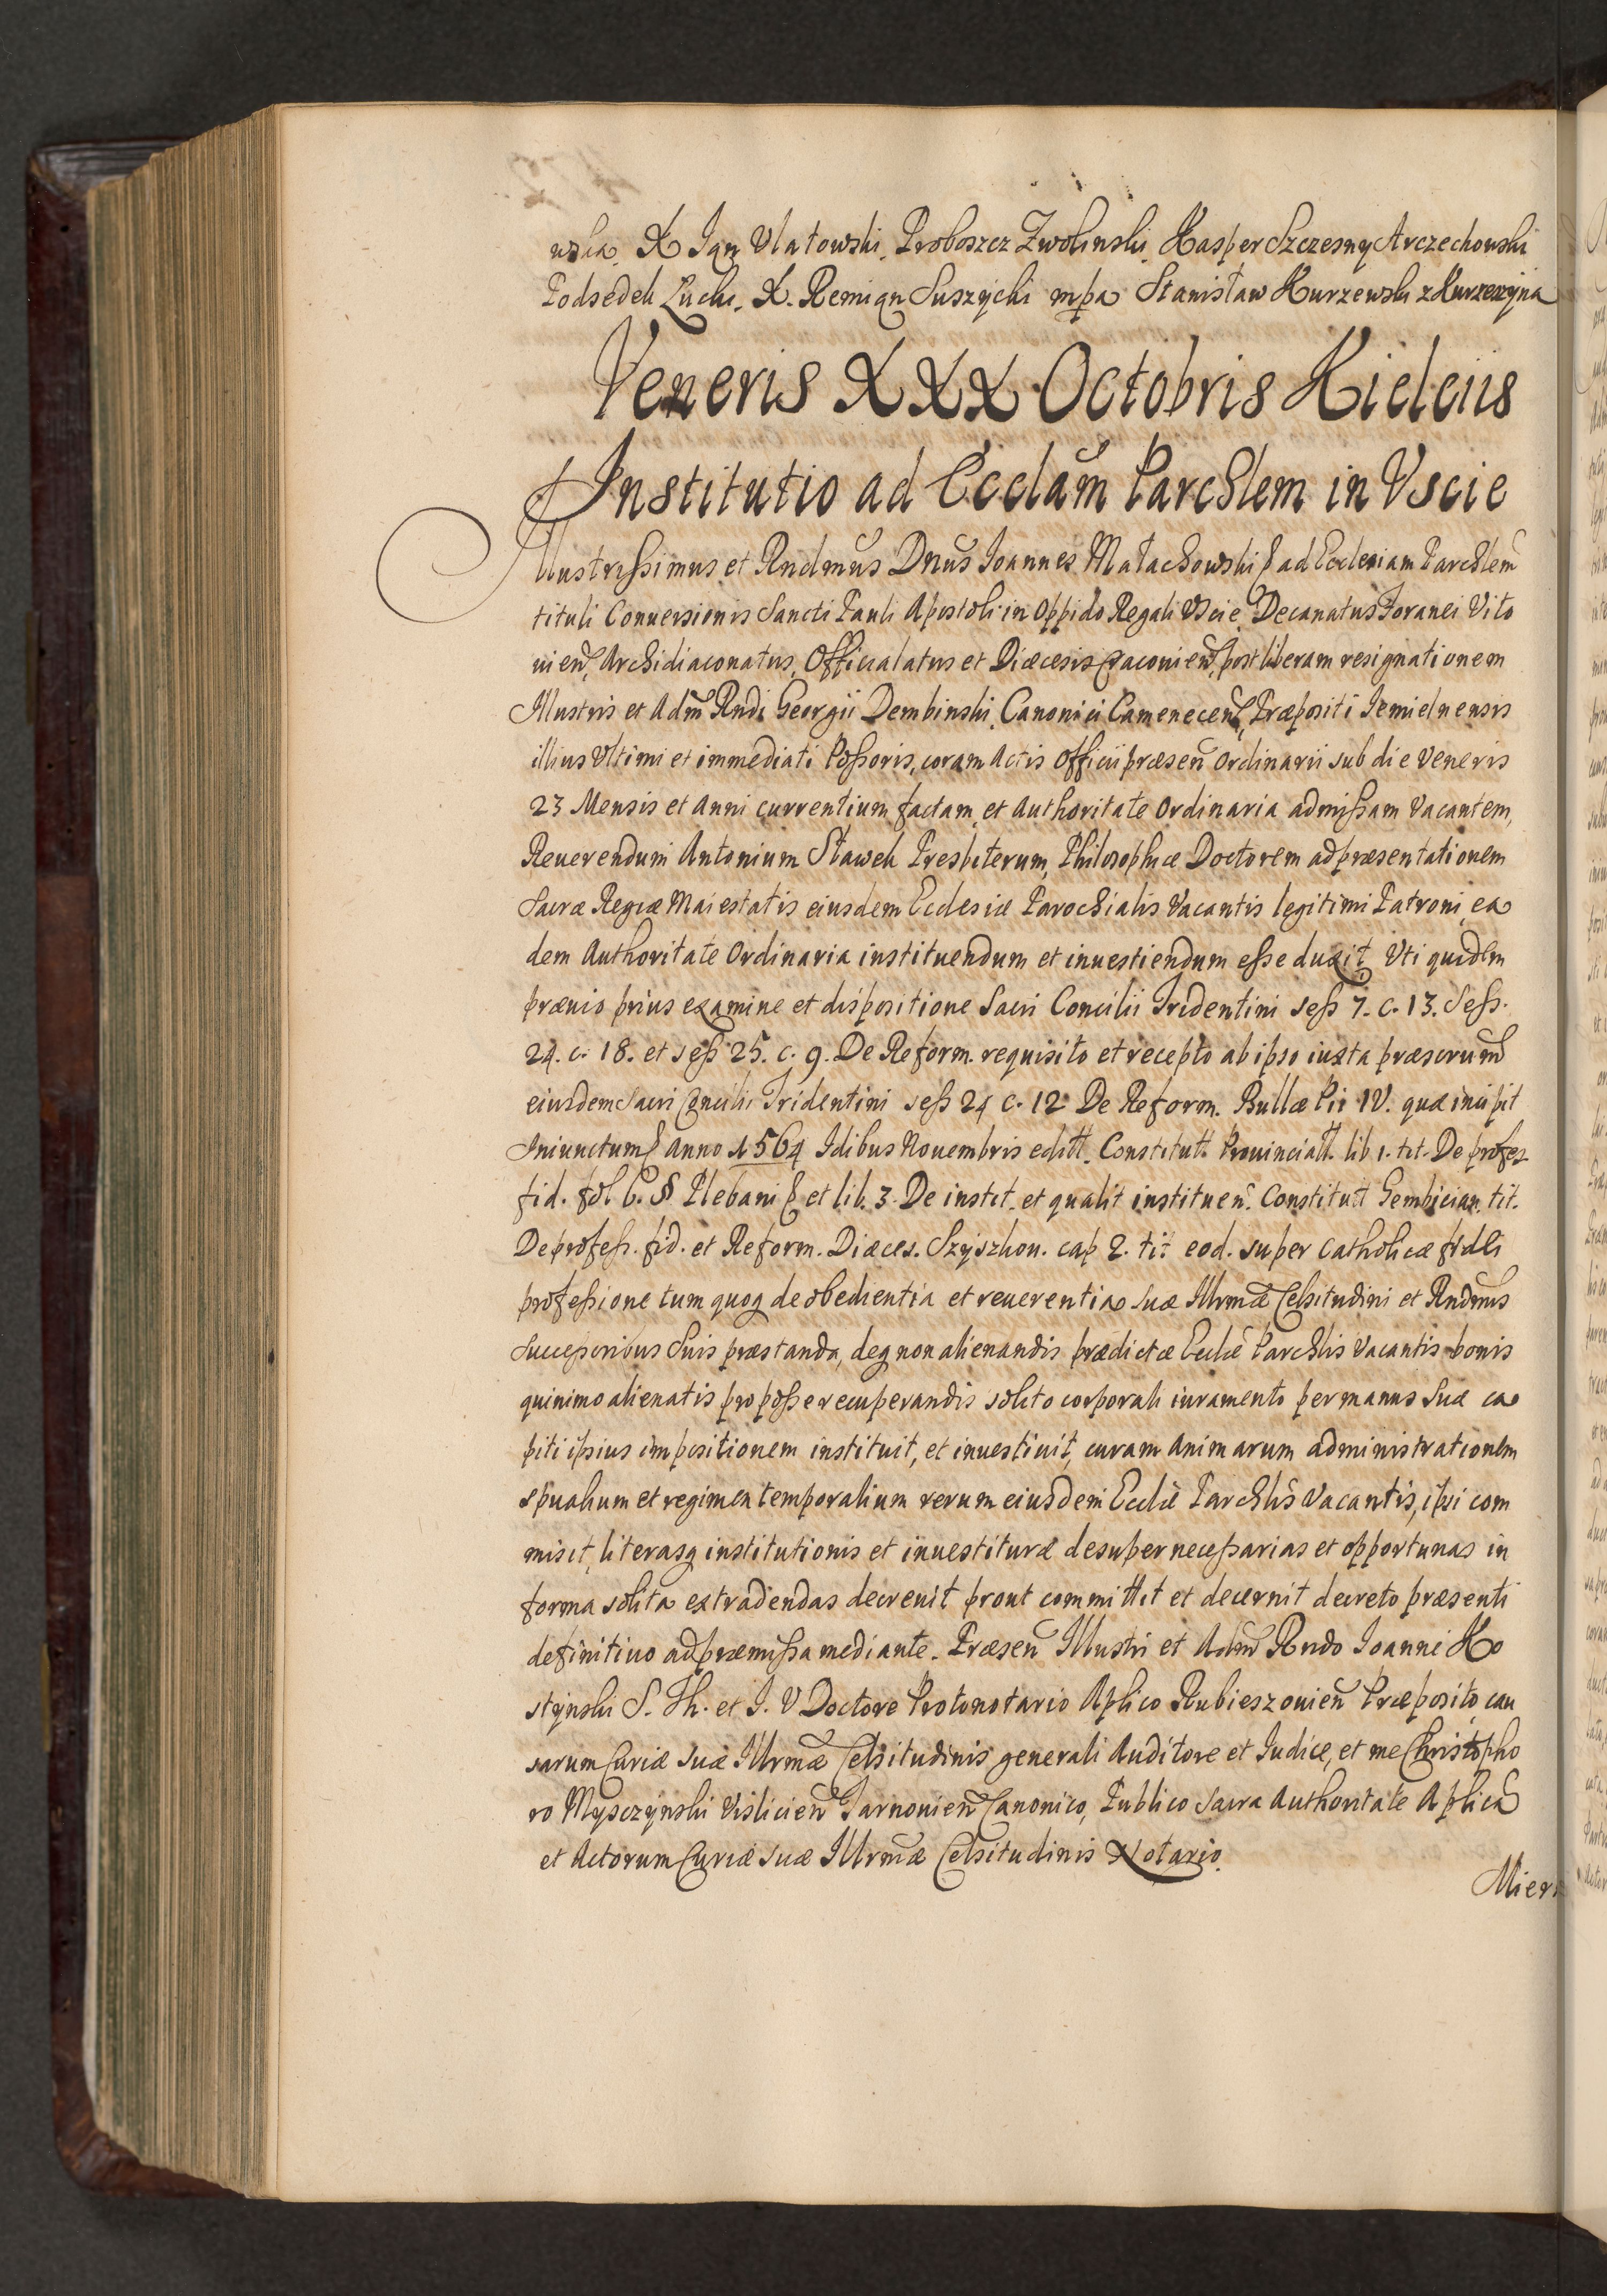 wska. X Jan Ulatowski, Proboszcz Zwolinski. Kasper Szczesny Arczechowski
Podsedek Łucki. X. Remian Suszycki mpa Stanisław Kurzewski z Kurzeszyna
Veneris XXX Octobris Kielciis
Institutio ad Eccląm Parchlem in Uscie
Illustrissimus et Rndmus Dnus Joannes Małachowski p ad Ecclesiam Parchlem
tituli Conuersionis Sancti Pauli Apostoli in Oppido Regali Uscie Decanatus Foranei Vito
uien, Archidiaconatus, Officialatus et Diæcesis Cracouien, post liberam resignationem
Illustris et Adm Rndi Georgii Dembinski Canonici Camenecen, Præpositi Jemielnensis
illius Ultimi et immediati Possoris, coram Actis Officii præsen Ordinarii sub die Veneris
23 Mensis et Anni currentium factam, et Authoritate Ordinaria admissam Vacantem,
Reuerendum Antonium Stawek Presbiterum, Philosophiæ Doctorem ad præsentationem
Sacræ Regiæ Maiestatis eiusdem Ecclesiæ Parochialis Vacantis legitimi Patroni, ea
dem Authoritate Ordinaria instituendum et inuestiendum esse duxit Uti quidem
præuio prius examine et dispositione Sacri Concilii Tridentini sess 7. c. 13. Sess.
24. c. 18. et sess 25. c. 9. De Reform. requisito et recepto ab ipso iuxta præscrum
eiusdem Sacri Concilii Tridentini sess 24 c. 12 De Reform. Bullæ Pii IV. quæ incipit
Iniunctum p anno 1564 Idibus Nouembris editt. Constitutt. Prouinciatt. lib. 1. tit. De profes
fid. fol 6. § Plebani p et lib. 3. De instit. et qualit instituen. Constitutt Gembician. tit.
De profess. fid. et Reform. Diæces. Szyszkou. cap 2. tit eod. super Catholicæ fidei
professione tum quoq de obedientia et reuerentia suæ Illrmæ Celsitudini et Rndmis
Successoribus suis præstanda, deq non alienandis prædictæ Ecclæ Parchlis Vacantis bonis
quinimo alienatis pro posse recuperandis solito corporali iuramento per manus suæ ca
piti ipsius impositionem instituit, et inuestiuit, curam animarum administrationem
spualium et regimen temporalium rerum eiusdem Ecclæ Parchlis Vacantis, ipsi com
misit, literasq institutionis et inuestituræ desuper necessarias et opportunas in
forma solita extradendas decreuit prout committit et decernit decreto præsenti
definitiuo ad præmissa mediante. Præsen Illustri et Adm Rndo Joanne Ko
stynski S. Th. et J. V Doctore Protonotario Aplico Rubieszouien Præposito, cau
sarum Curiæ suæ Illrmæ Celsitudinis generali Auditore et Iudice, et me Christopho
ro Mysczynski Vislicien Tarnouien Canonico, Publico sacra Authoritate Aplica
et Actorum Curiæ suæ Illrmæ Celsitudinis Notario.